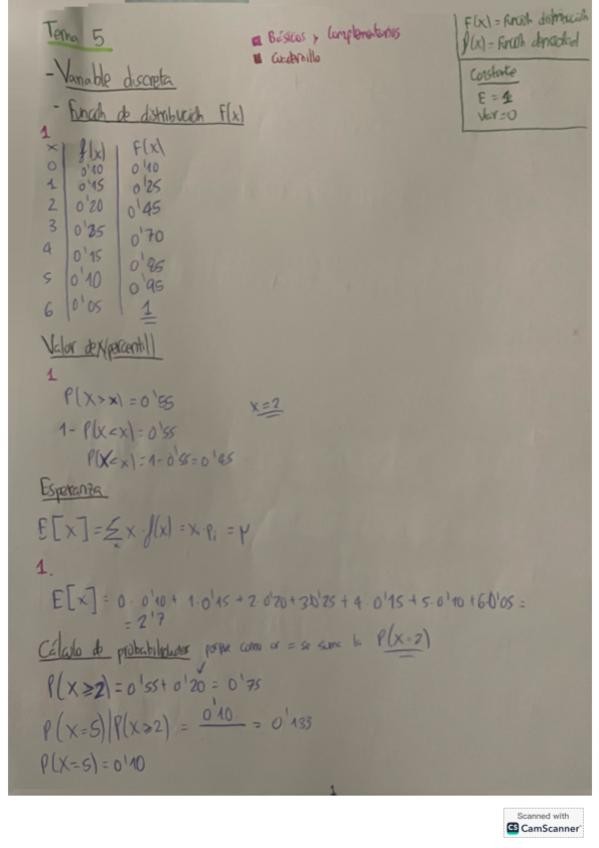 Tema 5
Básicos y Complementarios
Cuadernillo
F(x) = Función distribución
f(x) = Función densidad
Constante
E = 1
Var = 0
- Variable discreta
- Función de distribución F(x)
1
x f(x) F(x)
0 0'10 0'10
1 0'15 0'25
2 0'20 0'45
3 0'25 0'70
4 0'15 0'85
5 0'10 0'95
6 0'05 1
Valor de x/percentil
1
P(X>x) = 0'55 x=2
1- P(X<x) = 0'55
P(X<x) = 1-0'55 = 0'45
Esperanza
E[x] = Σ x · f(x) = x · Pi = μ
1.
E[x] = 0 · 0'10 + 1·0'15 + 2·0'20 + 3·0'25 + 4 · 0'15 + 5·0'10 + 6·0'05 =
= 2'7
Cálculo de probabilidades porque como or = se suma la P(x=2)
P(X≥2) = 0'55 + 0'20 = 0'75
P(X=5)|P(X≥2) = 0'10 = 0'133
P(X=5) = 0'10
1
Scanned with
CS CamScanner